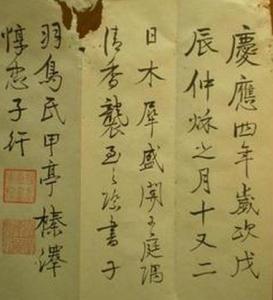 慶應四年歲次戊
辰仲秌之月十又二
日木犀盛開于庭隅
清香襲至之際書于
羽鳥氏甲亭榛澤
惇忠子行